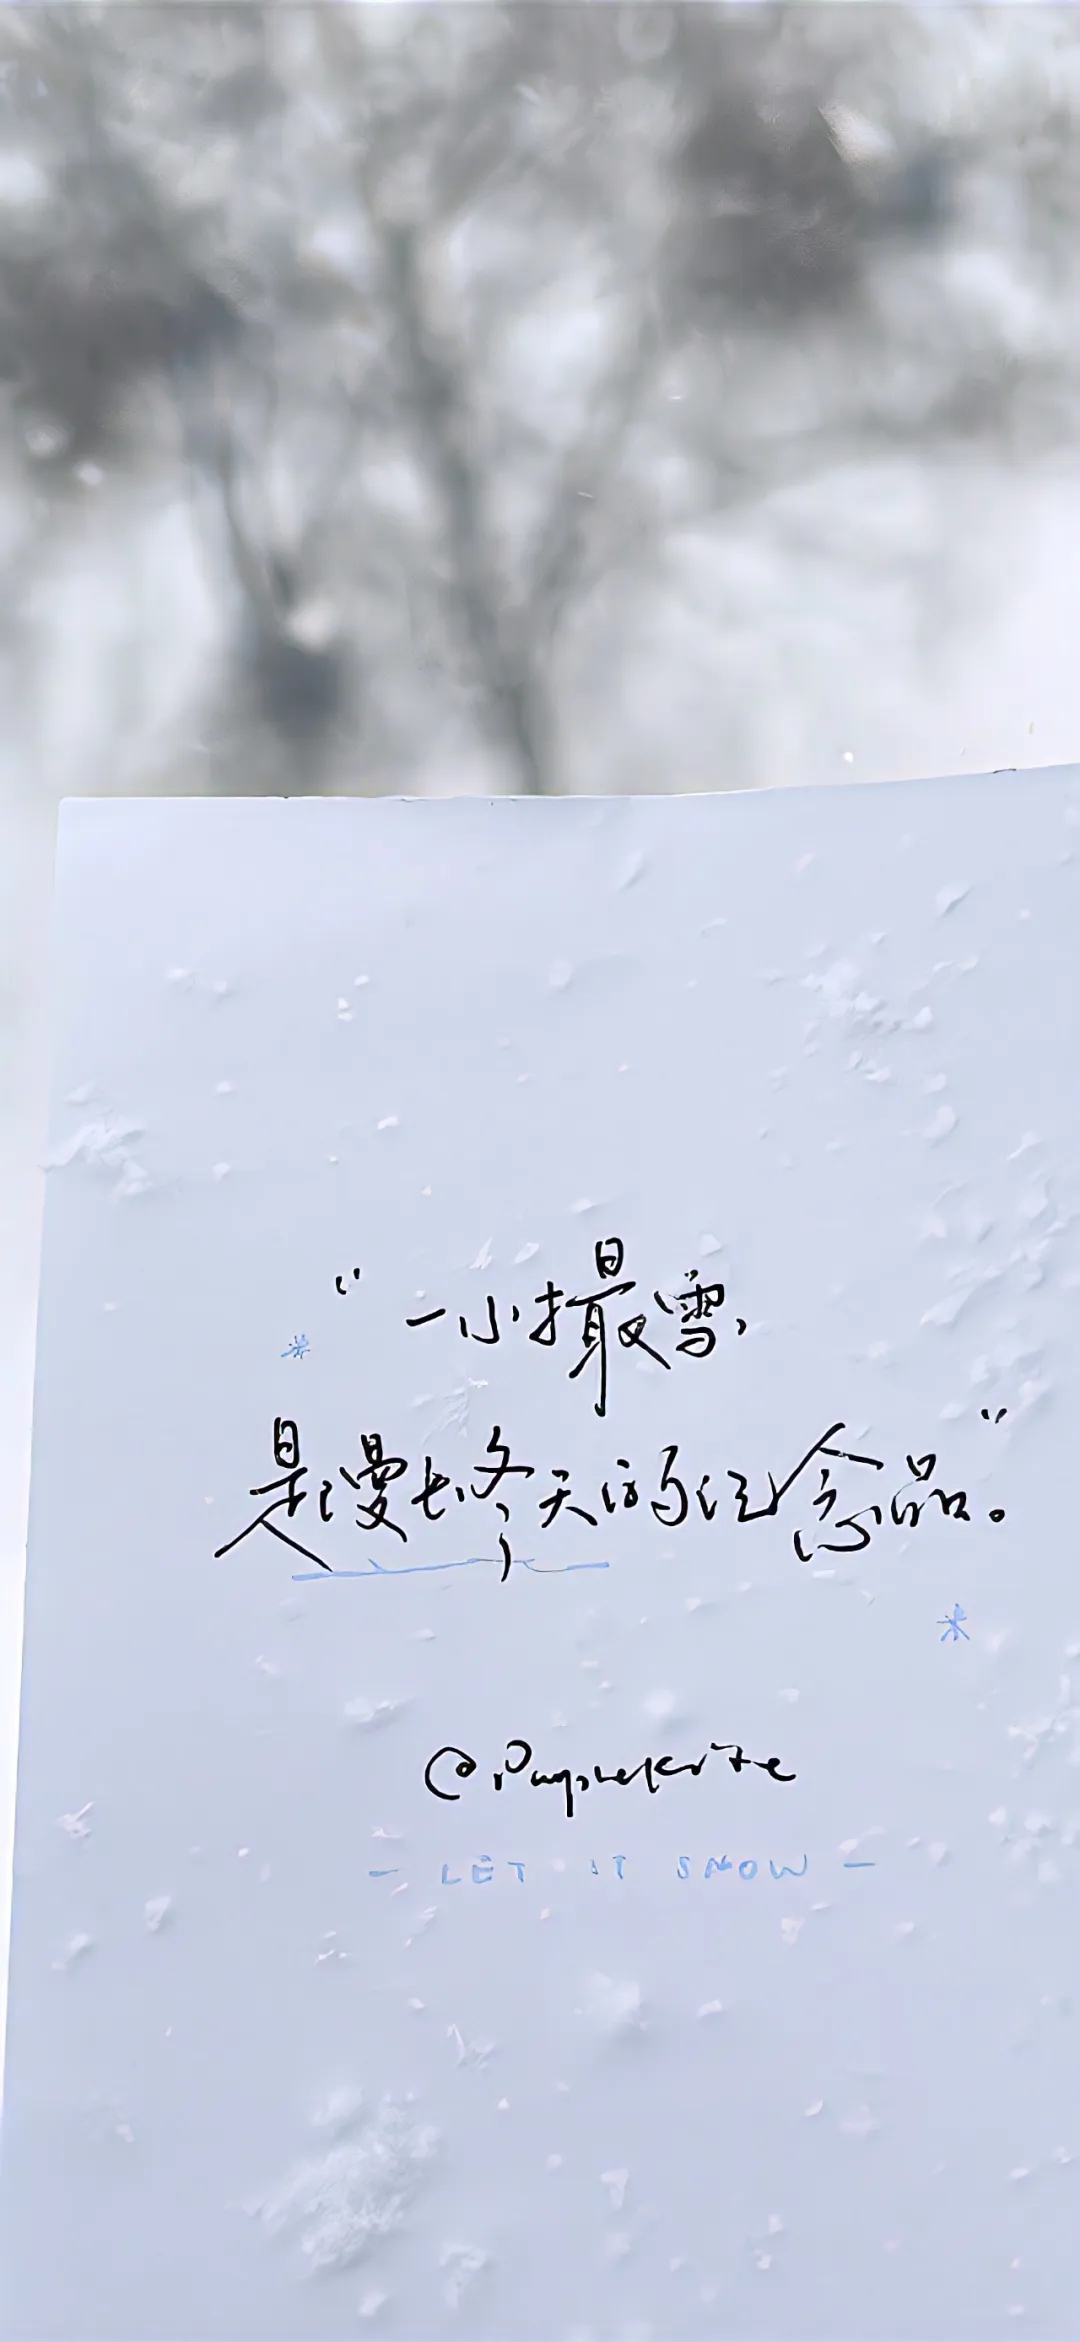 “一小撮雪,
是漫长冬天的纪念品。”
- LET IT SNOW -